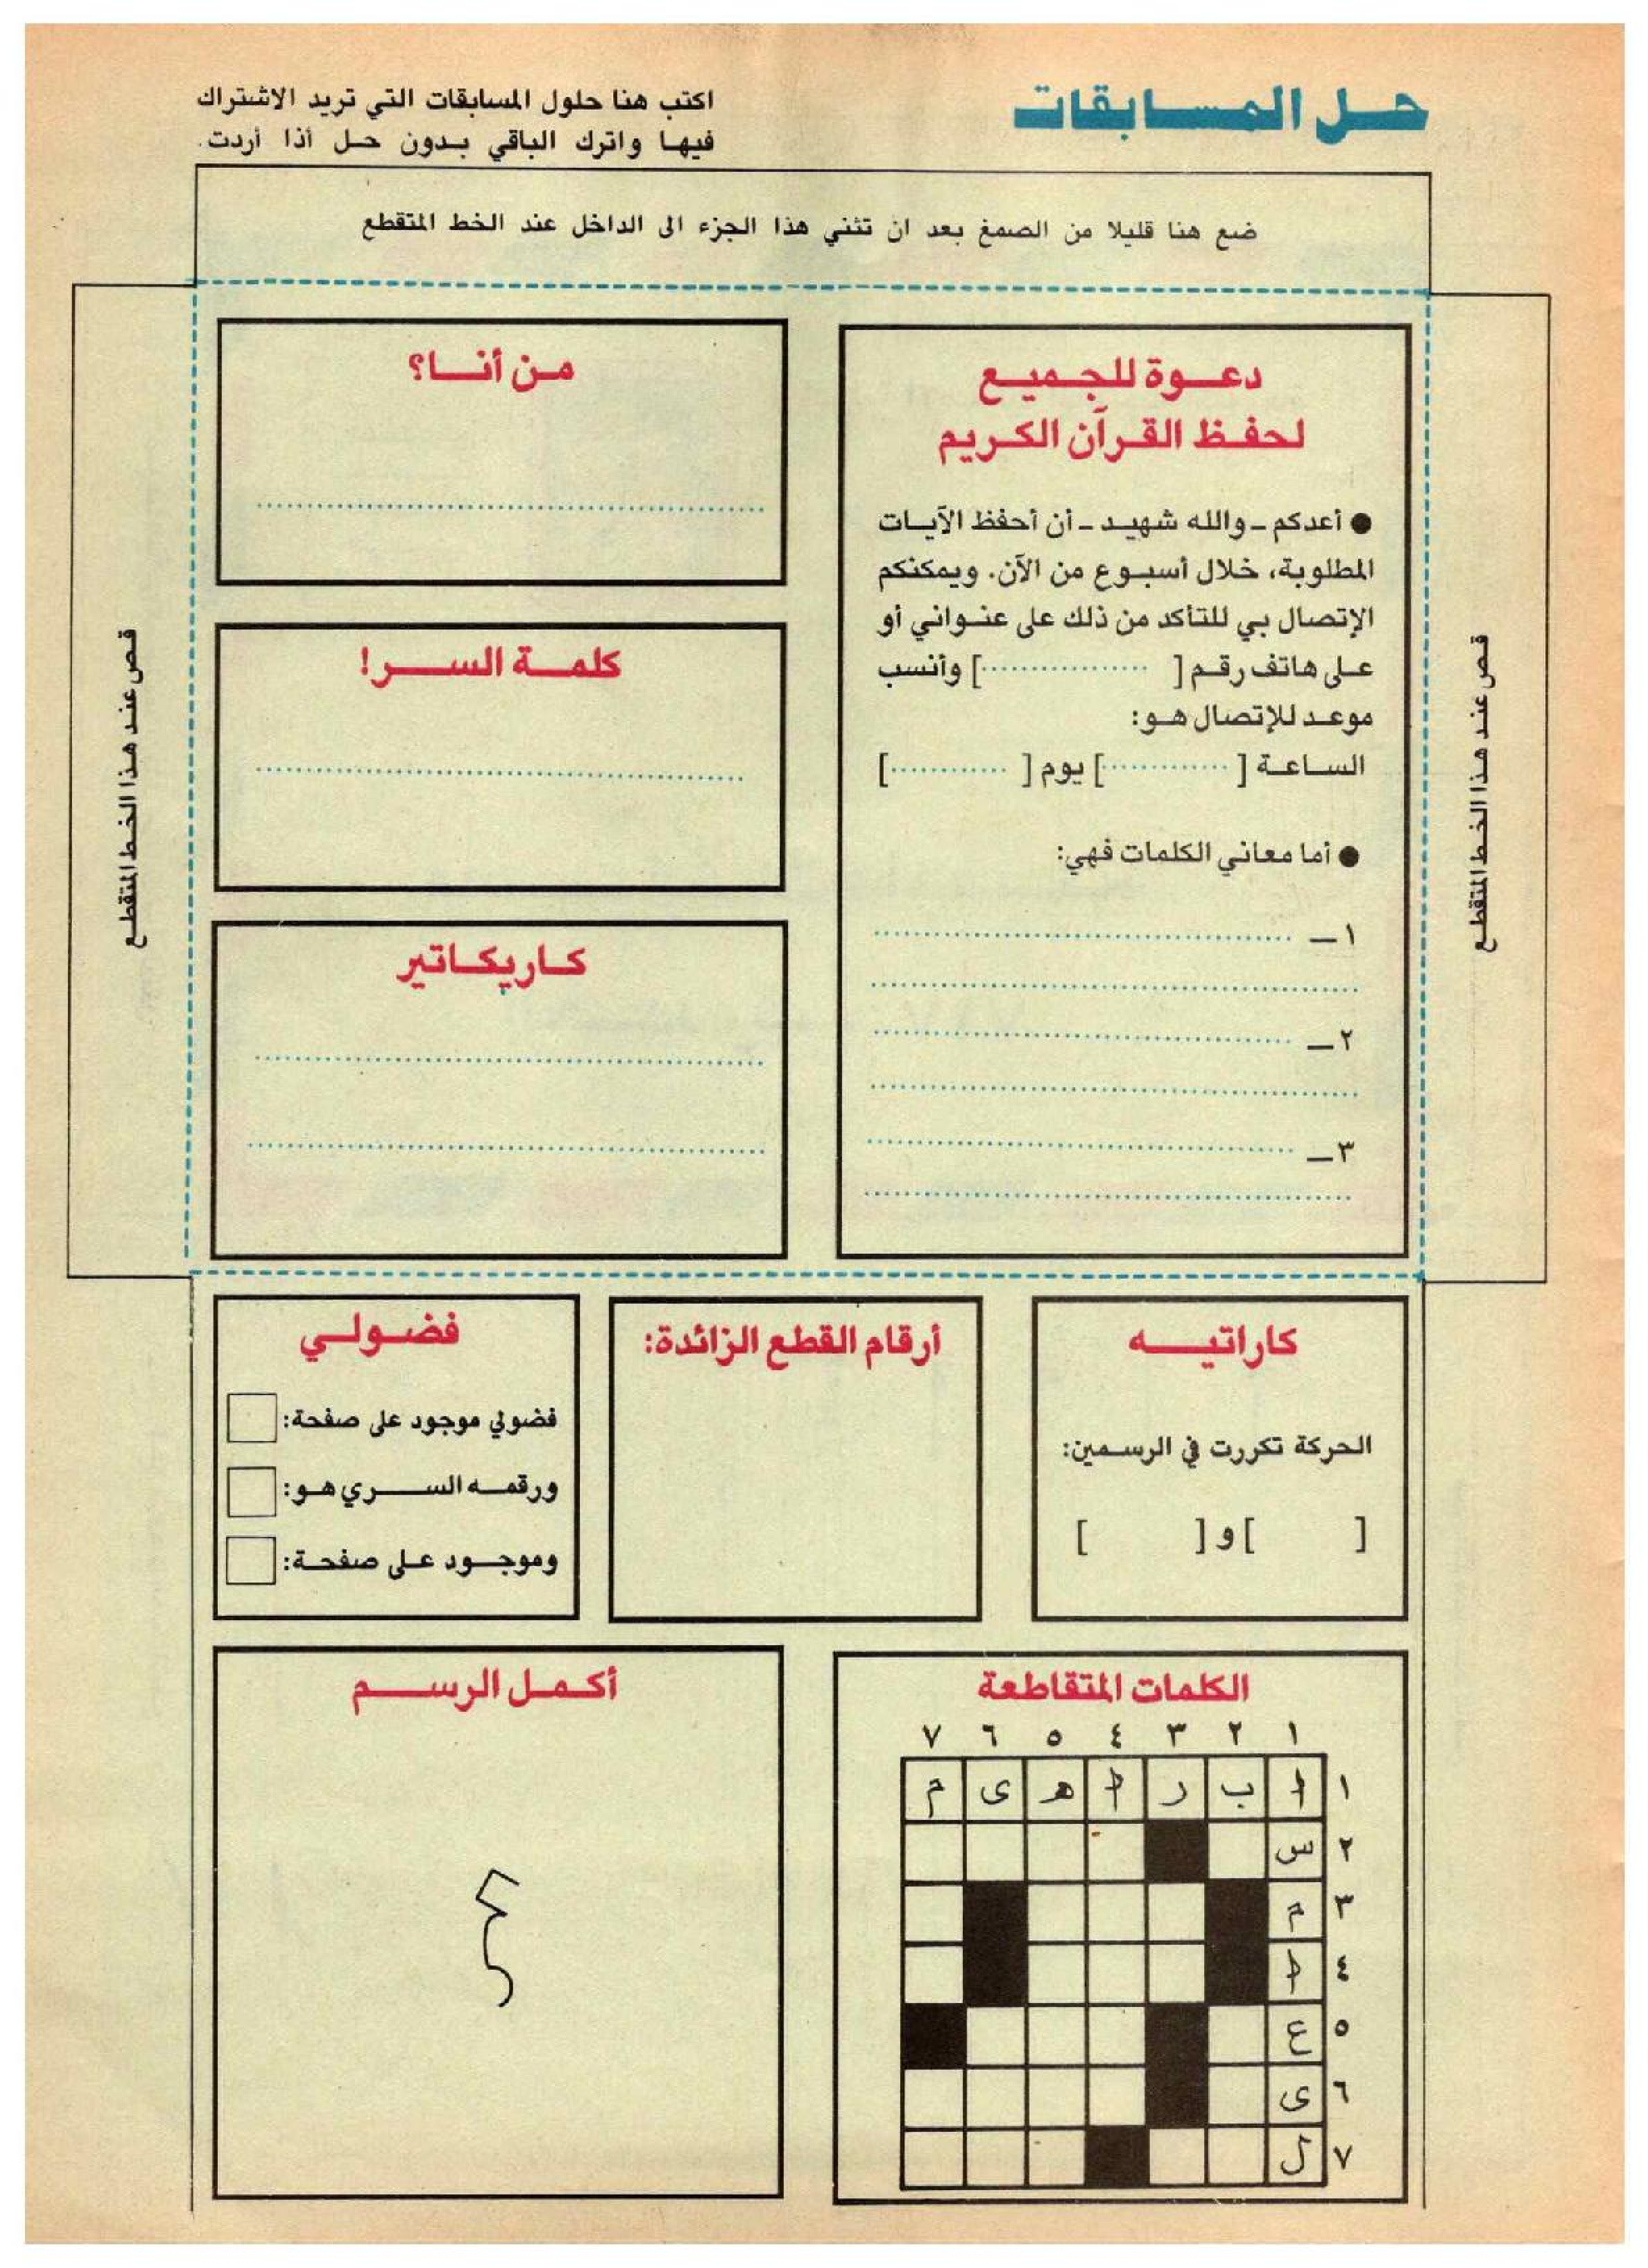 حل المسابقات
اكتب هنا حلول المسابقات التي تريد الاشتراك
فيها واترك الباقي بدون حل أذا أردت.
ضع هنا قليلا من الصمغ بعد ان تثني هذا الجزء الى الداخل عند الخط المتقطع
قص عند هذا الخط المتقطع
دعوة للجميع
لحفظ القرآن الكريم
● أعدكم - والله شهيد - أن أحفظ الآيات
المطلوبة، خلال أسبوع من الآن. ويمكنكم
الإتصال بي للتأكد من ذلك على عنواني أو
على هاتف رقم [ .................. ] وأنسب
موعد للإتصال هو:
الساعة [ ............. ] يوم [ ............ ]
● أما معاني الكلمات فهي:
١ـ
٢ـ
٣ـ
من أنا؟
كلمة السر!
كاريكاتير
قص عند هذا الخط المتقطع
كاراتيه
الحركة تكررت في الرسمين:
[ ] و [ ]
أرقام القطع الزائدة:
فضولي
فضولي موجود على صفحة:
ورقمه السري هو:
وموجود على صفحة:
الكلمات المتقاطعة
١ ٢ ٣ ٤ ٥ ٦ ٧
١ ا ب ر ا ه ى م
٢ س
٣ م
٤ ا
٥ ع
٦ ى
٧ ل
أكمل الرسم